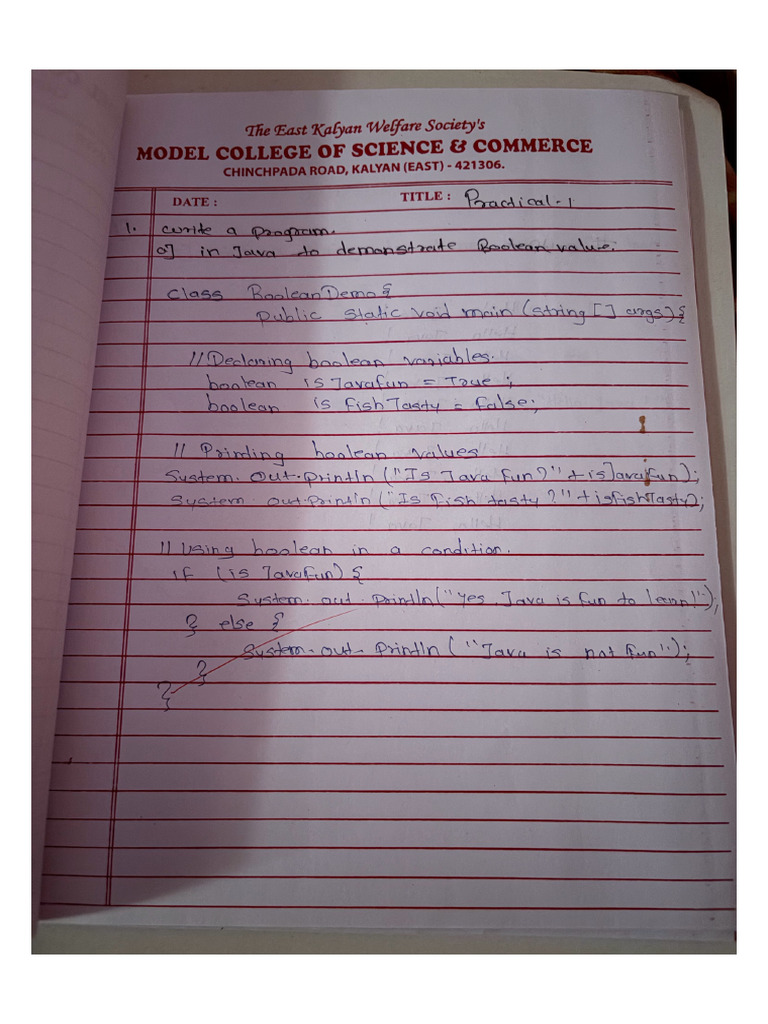 The East Kalyan Welfare Society's
MODEL COLLEGE OF SCIENCE & COMMERCE
CHINCHPADA ROAD, KALYAN (EAST) - 421306.
DATE : TITLE : Practical-1
1. write a program.
a] in Java to demonstrate Boolean value.
class BooleanDemo{
public static void main (string [] args){
//Declaring boolean variables.
boolean isJavafun = True ;
boolean is fishTasty = false;
// Printing boolean values
System.out.println("Is Java fun?"+isJavafun);
System.out.Println("Is fish tasty?"+isfishTasty);
// Using boolean in a condition.
if (is JavaFun) {
System.out.Println("Yes, Java is fun to learn!");
} else {
System.out.Println("Java is not fun");
}
}